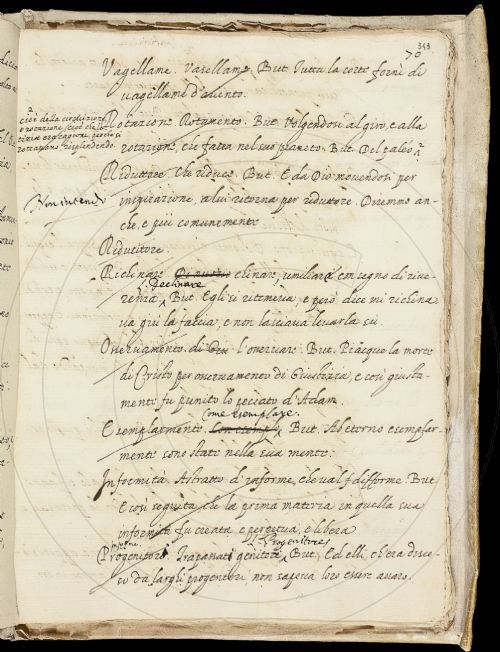 343
70
Vagellame. Vasellame. But. Tutta la corte fornì di
vagellame d'ariento.
cioè della circulazione,
o rotazione, cioè che la
rotavano risplendendo
Rotazione. Rotamento. But. Volgendosi al giro, e alla
rotazione, che fatta nel suo pianeto. But. Del paleo
Ridutore. Che riduce. But. E da Dio movendosi per
Non intendo
inspirazione, a lui ritorna per ridutore. Diremmo an-
che, e più comunemente
Riducitore.
Richinare. Di nuovo clinare, umiliare con segno di rive-
Declinare
renza. But. Egli si riteneva, e però dice mi richina
va giù la faccia, e non lasciava levarla su.
Osservamento. di Giu L'osservare. But. Piacque la morte
di Cristo per osservamento di Giustizia, e così giusta-
mente fu punito lo peccato d'Adam.
Come esemplare.
Esemplarmente. Con esempl But. Ab eterno esemplar-
mente sono state nella sua mente.
Informità. Astratto d'informe, che val difforme. But.
E così seguita che la prima materia in quella sua
informità fu creata e perpetua, e libera
Progenitore
Progenitori. Trapassati genitori. But. Ed elli, ch'era disce-
so da larghi progenitori, non sapeva loro essere avaro.